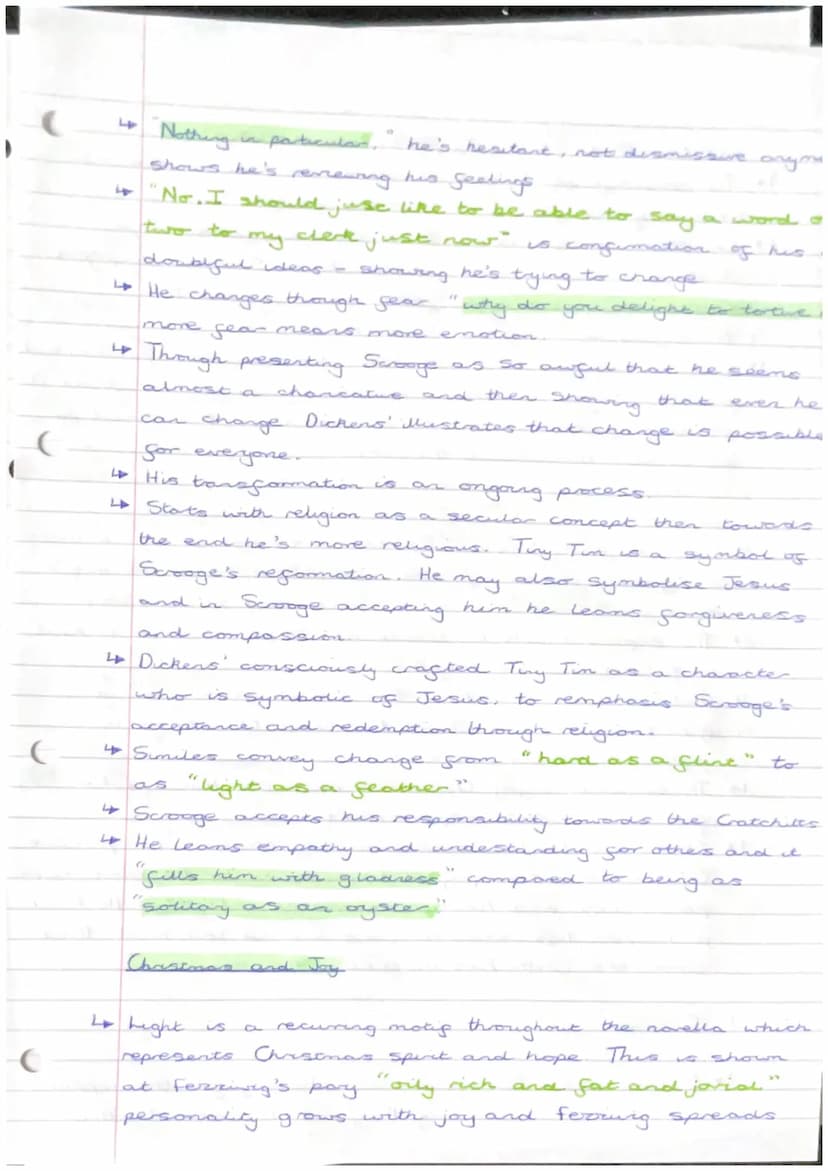 ↳ "Nothing in particular," he's hesitant, not dismissive anym
shows he's renewing his feelings
↳ "No. I should just like to be able to say a word o
two to my clerk just now" is confirmation of his
doubtful ideas - showing he's trying to change
↳ He changes though fear "why do you delight to torture
more fear means more emotion.
↳ Through presenting Scrooge as so awful that he seems
almost a charicatue and then showing that even he
can change Dickens' illustrates that change is possible
for everyone.
↳ His transformation is an ongoing process.
↳ Starts with religion as a secular concept then towards
the end he's more religious. Tiny Tim is a symbol of
Scrooge's reformation. He may also symbolise Jesus
and in Scrooge accepting him he learns forgiveness
and compassion.
↳ Dickens' consciously crafted Tiny Tim as a character
who is symbolic of Jesus, to remphasis Scrooge's
acceptance and redemption through religion.
↳ Similes convey change from "hard as a flint" to
as "light as a feather"
↳ Scrooge accepts his responsibility towards the Cratchits
↳ He learns empathy and understanding for others and it
"fills him with gladness" compared to being as
"solitary as an oyster"
Christmas and Joy
↳ Light is a recurring motif throughout the novella which
represents Christmas spirit and hope. This is shown
at Fezziwig's pary "oily rich and fat and jovial"
personality grows with joy and fezziwig spreads